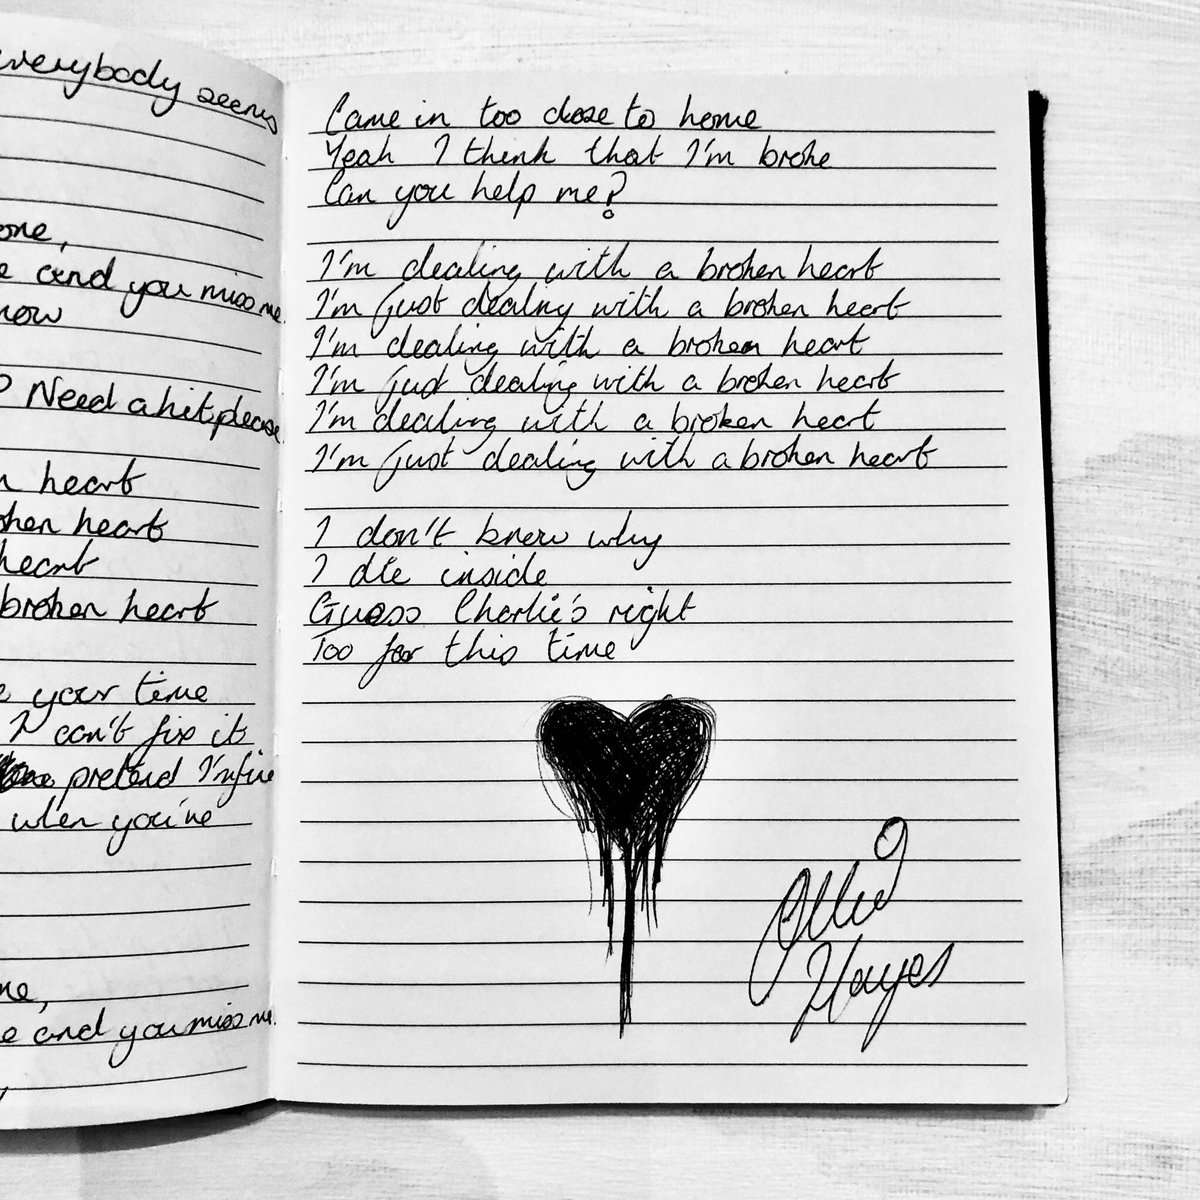 everybody seems
one,
and you miss me.
now
Need a hit please.
heart
broken heart
heart
broken heart
your time
I can't fix it
pretend I'm fine
when you're
me,
and you miss me.
Came in too close to home
Yeah I think that I'm broke
Can you help me?
I'm dealing with a broken heart
I'm just dealing with a broken heart
I'm dealing with a broken heart
I'm just dealing with a broken heart
I'm dealing with a broken heart
I'm just dealing with a broken heart
I don't know why
I die inside
Guess Charlie's right
Too for this time
Ollie
Hayes